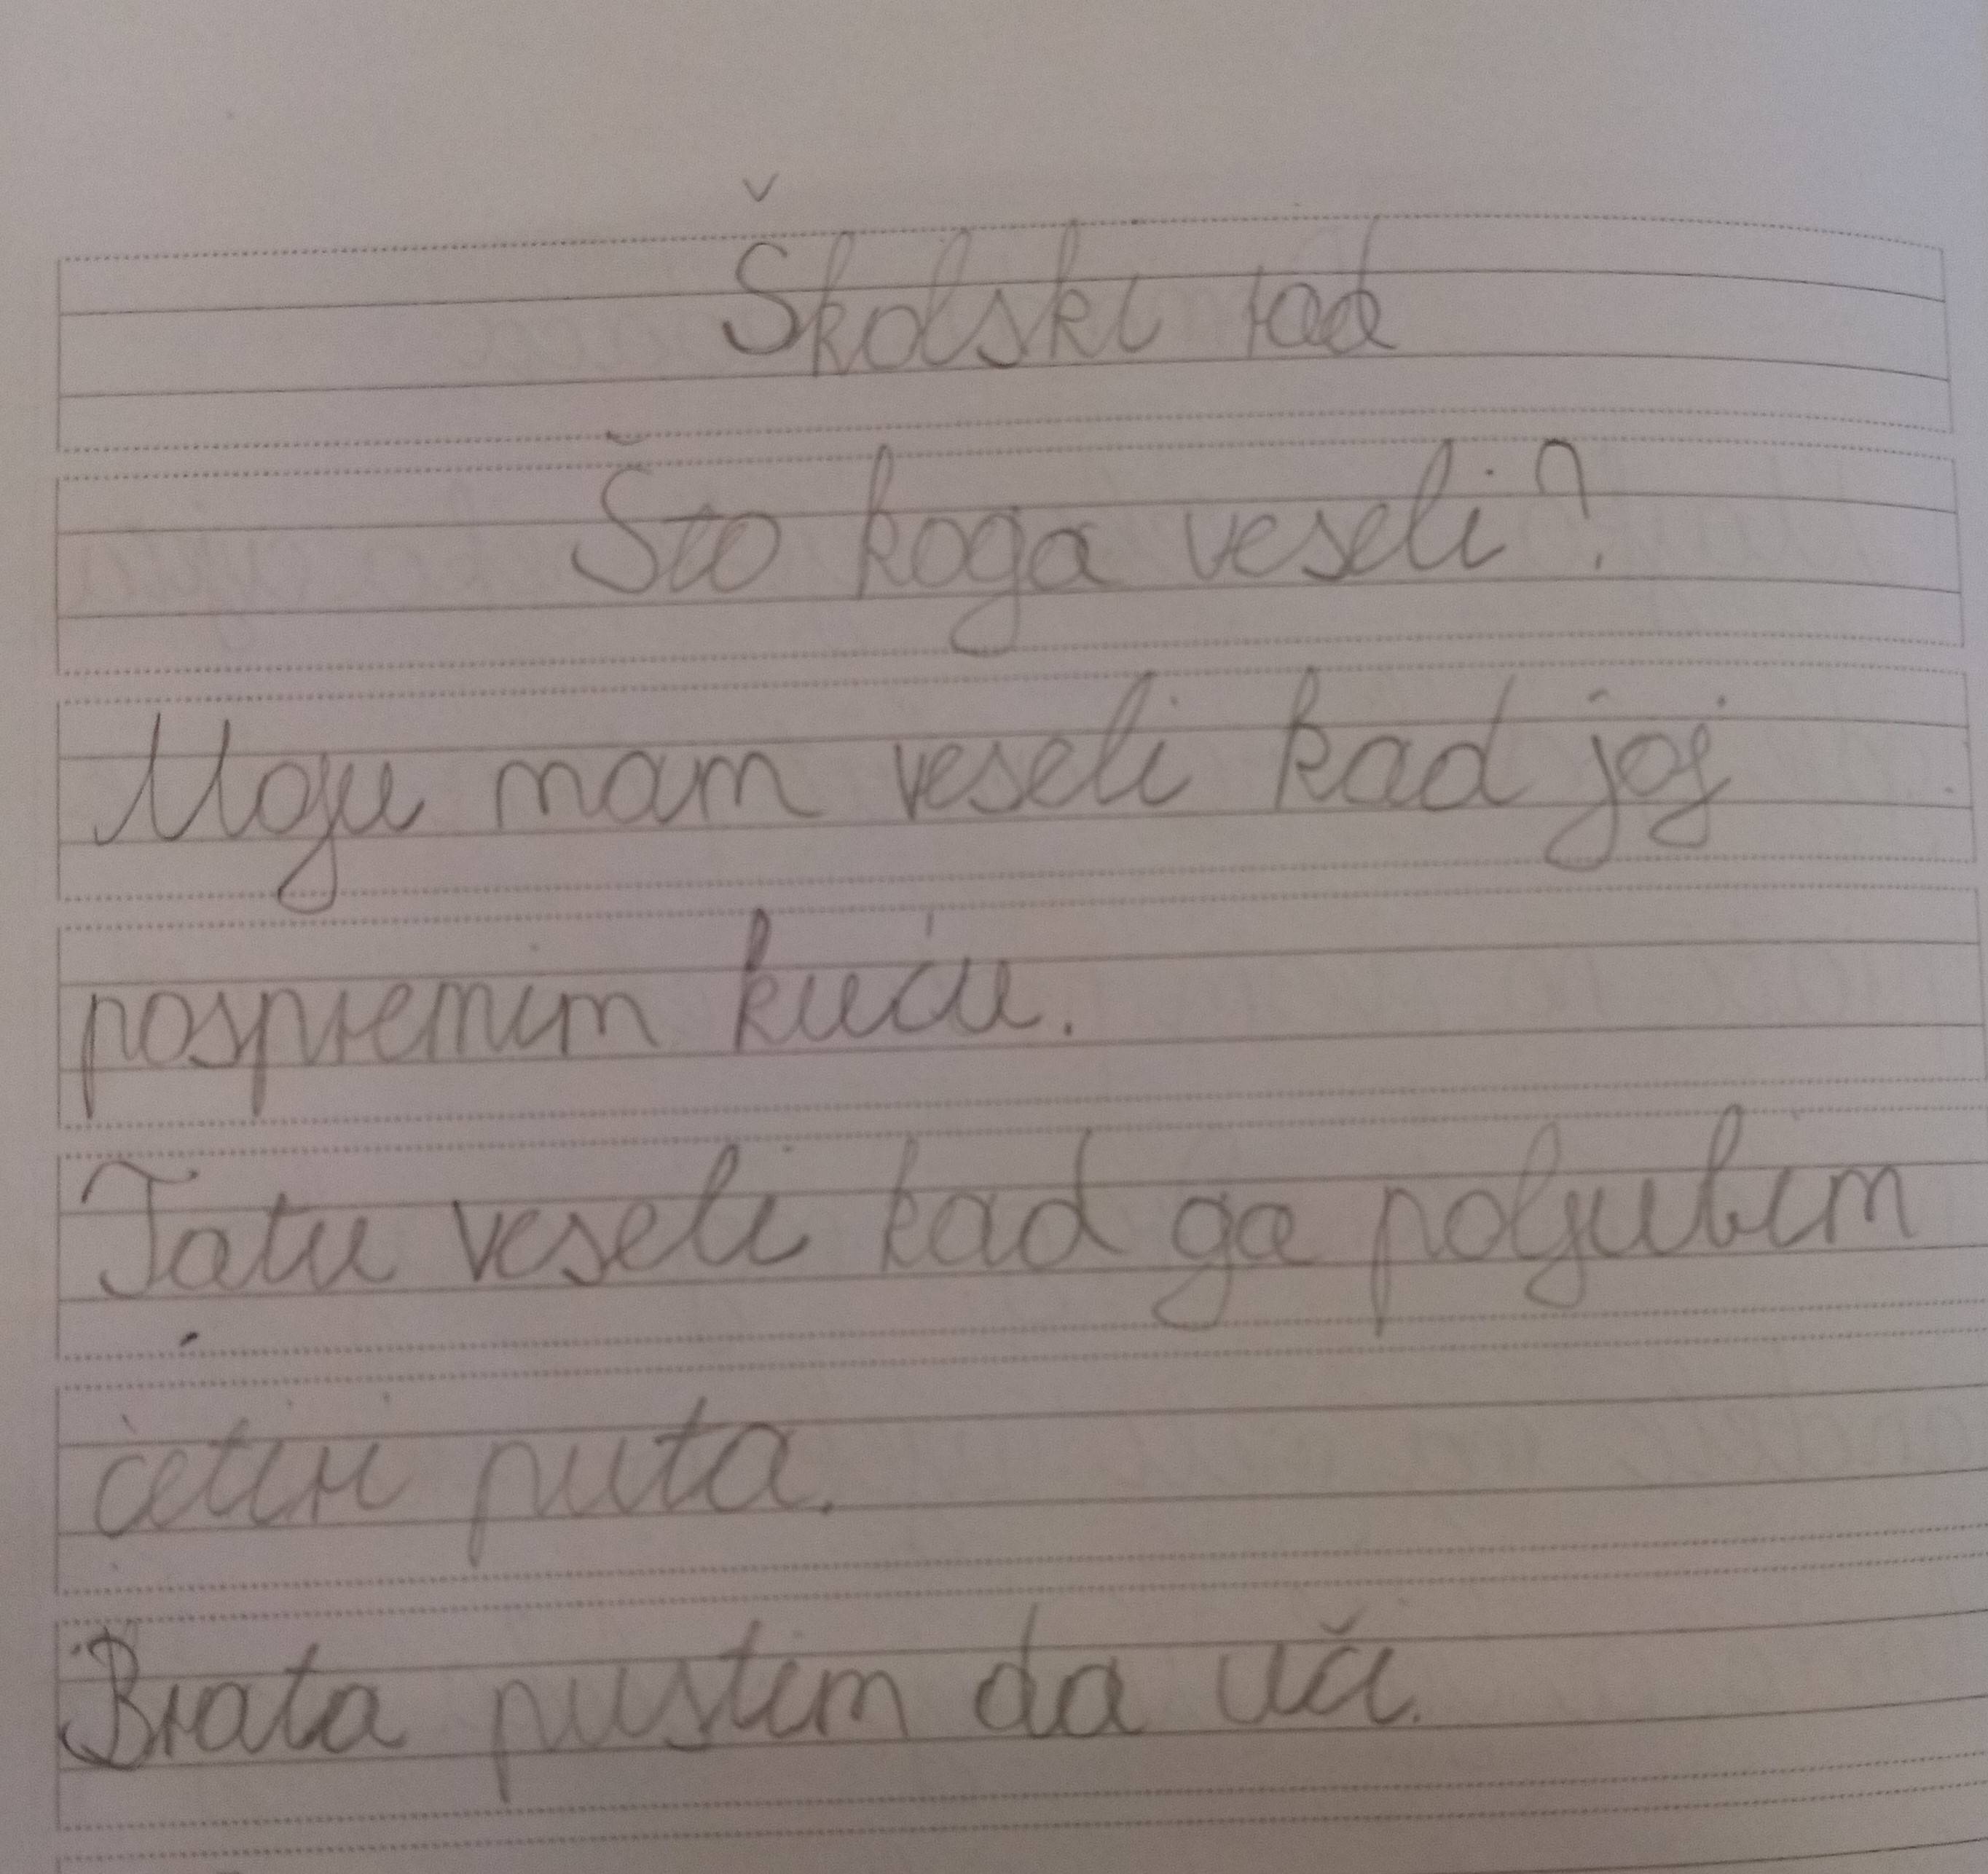 Školski rad
Što koga veseli?
Moju mam veseli kad joj
pospremim kuću.
Tatu veseli kad ga poljubim
ćetiri puta.
Brata pustim da uči.